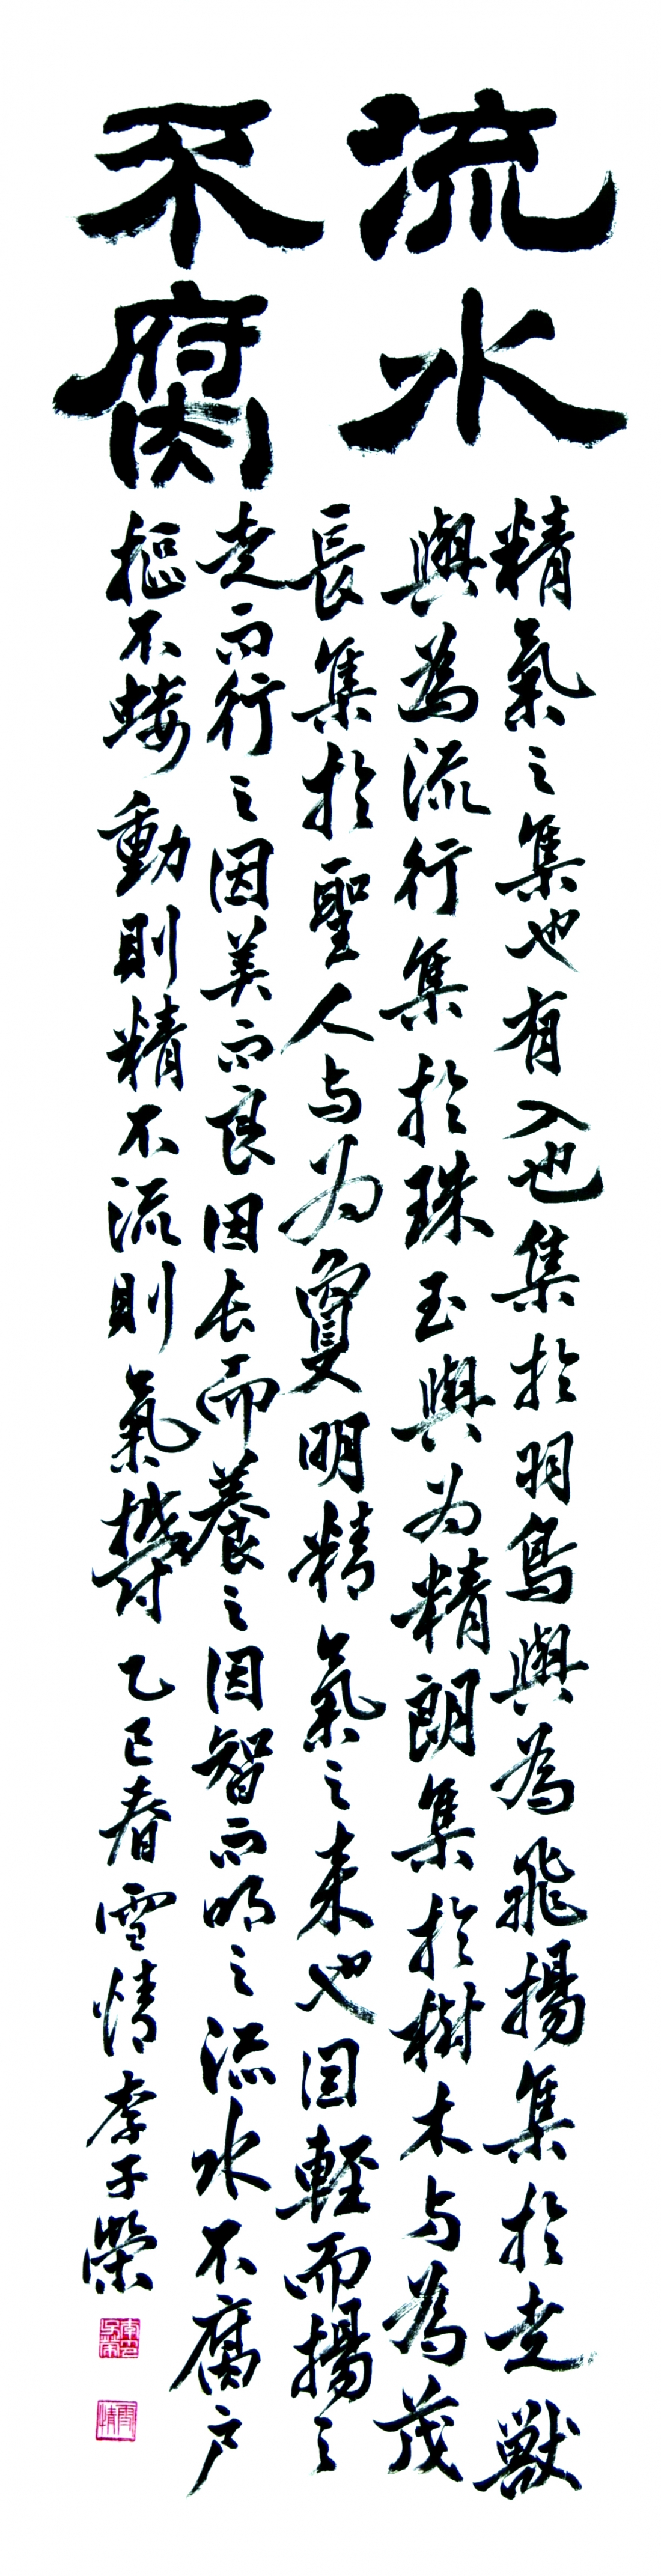 流水
不腐
精氣之集也有入也集於羽鳥與為飛揚集於走獸
與為流行集於珠玉與为精朗集於樹木与為茂
長集於聖人与为夐明精氣之来也因輕而揚之
走而行之因美而良因长而養之因智而明之流水不腐户
樞不蝼動則精不流則氣欝乙巳春雪情李子榮
雪情